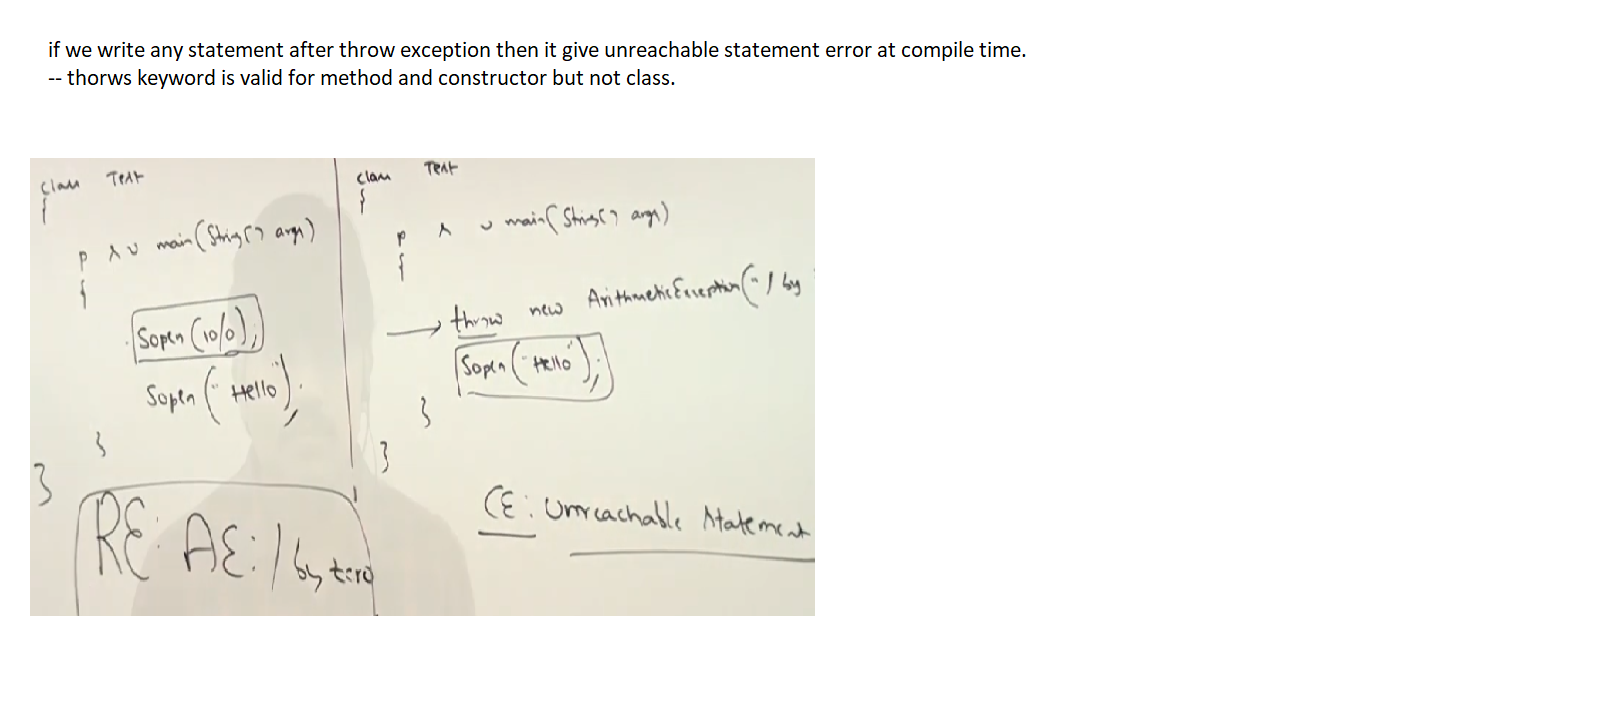 if we write any statement after throw exception then it give unreachable statement error at compile time.
-- thorws keyword is valid for method and constructor but not class.
class Test
{
p s v main(String[] args)
{
Sopln(10/0);
Sopln("Hello");
}
}
RE: AE: / by zero
class Test
{
p s v main(String[] args)
{
throw new ArithmeticException("/ by
Sopln("Hello");
}
}
CE: Unreachable statement